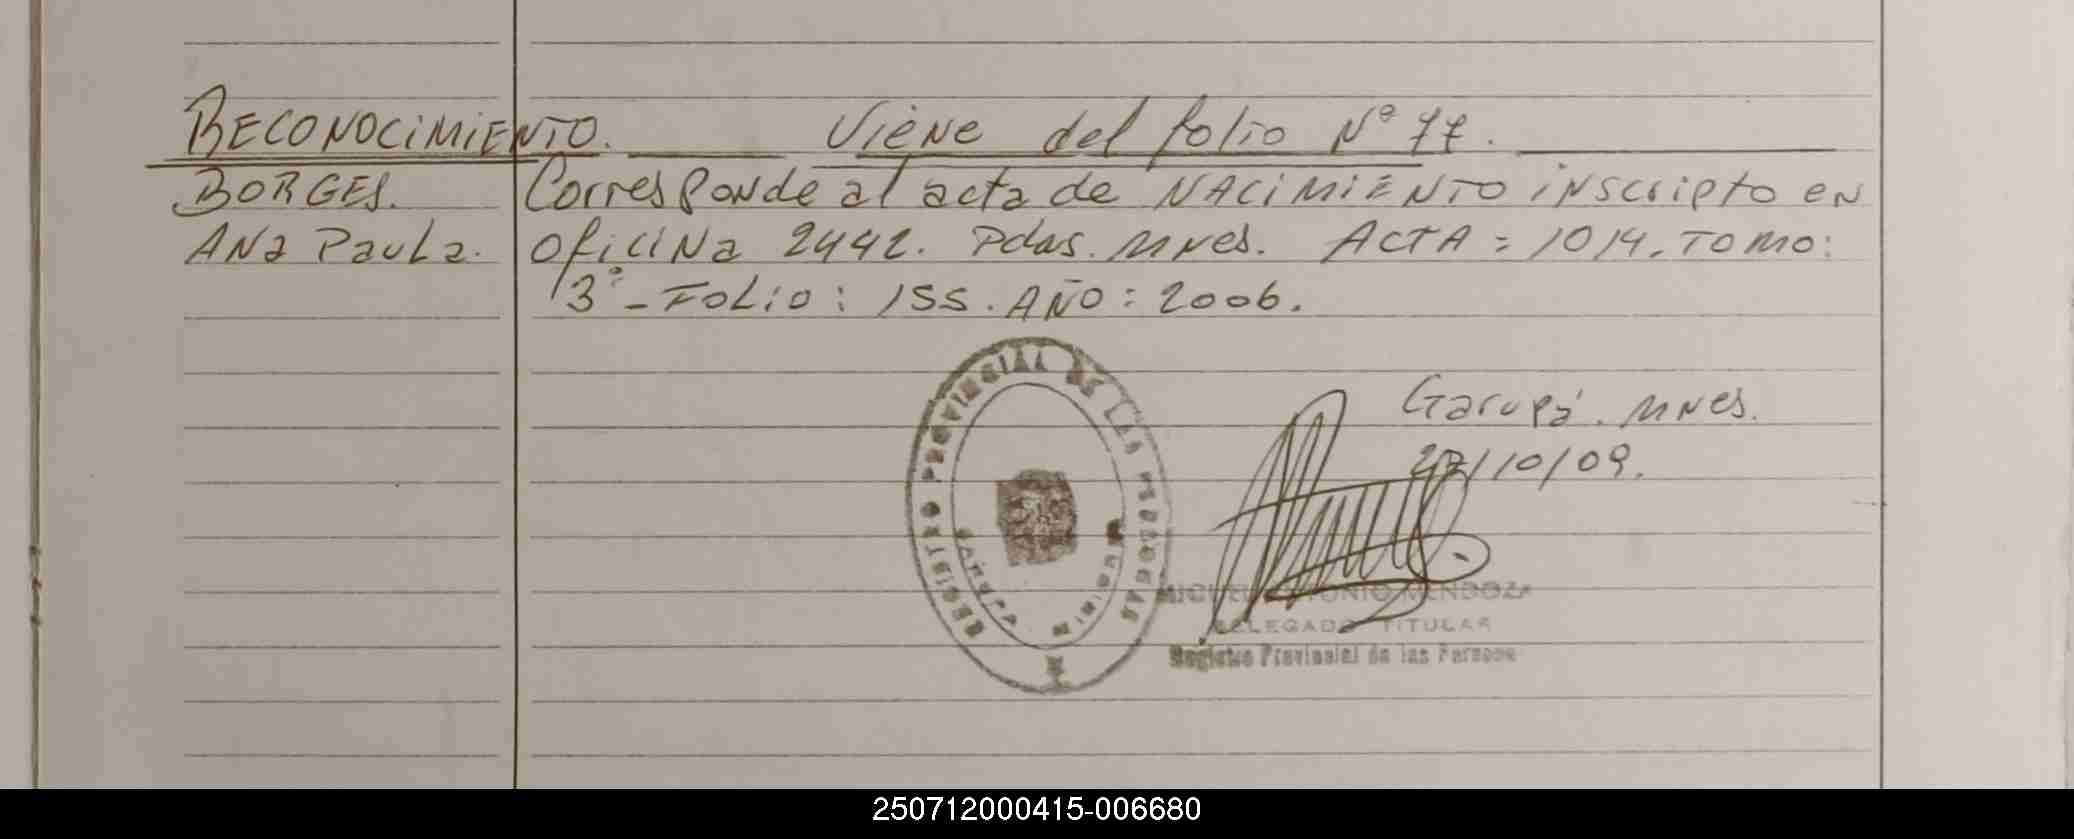 RECONOCIMIENTO. Viene del folio Nº 77.
BORGES. Corresponde al acta de NACIMIENTO inscripto en
Ana Paula. oficina 2442. Pdas. Mnes. ACTA = 1014. TOMO:
3º - FOLIO: 155. AÑO: 2006.
Garupá. Mnes.
27/10/09.
REGISTRO PROVINCIAL DE LAS PERSONAS
GARUPA
MISIONES
MIGUEL ANTONIO MENDOZA
DELEGADO TITULAR
Registro Provincial de las Personas
250712000415-006680